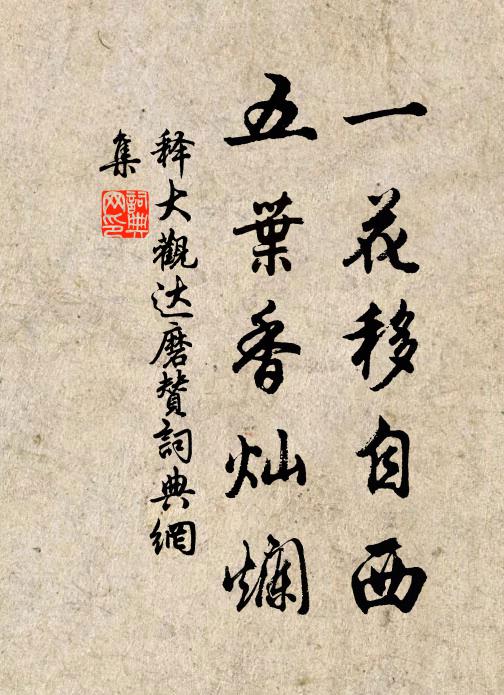 一花移自西
五葉香灿爛
释大觀达磨贊詞典網
集
詞典
网印